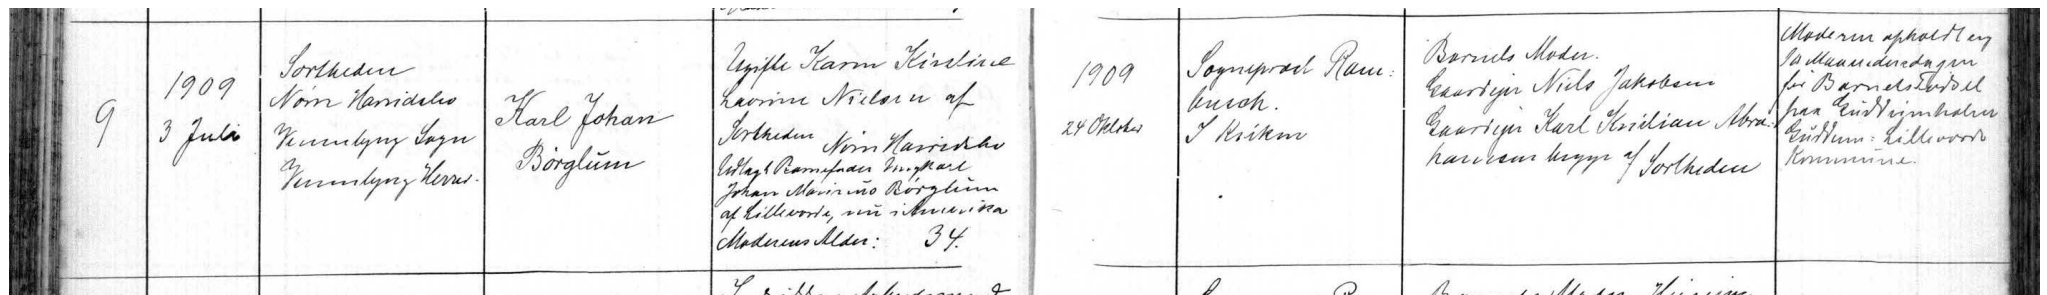 9
1909
3 Juli
Sortheden
Nørre Harridslev
Vennebjerg Sogn
Vennebjerg Herred.
Karl Johan
Børglum
Ugifte Karen Kirstine
Lavrine Nielsen af
Sortheden Nørre Harridslev
Udlagt Barnefader Ungkarl
Johan Marinus Børglum
af Lillevorde, nu i Amerika
Moderens Alder: 34.
1909
24 Oktober
Sognepræst Ram:
busch.
I Kirken
Barnets Moder.
Gaardejer Niels Jakobsen
Gaardejer Karl Kristian Abra:
hamsen begge af Sortheden
Moderen opholdt sig
10 Maanedersdagen
før Barnets Fødsel
paa Guddumholm
Guddum: Lillevorde
Kommune.